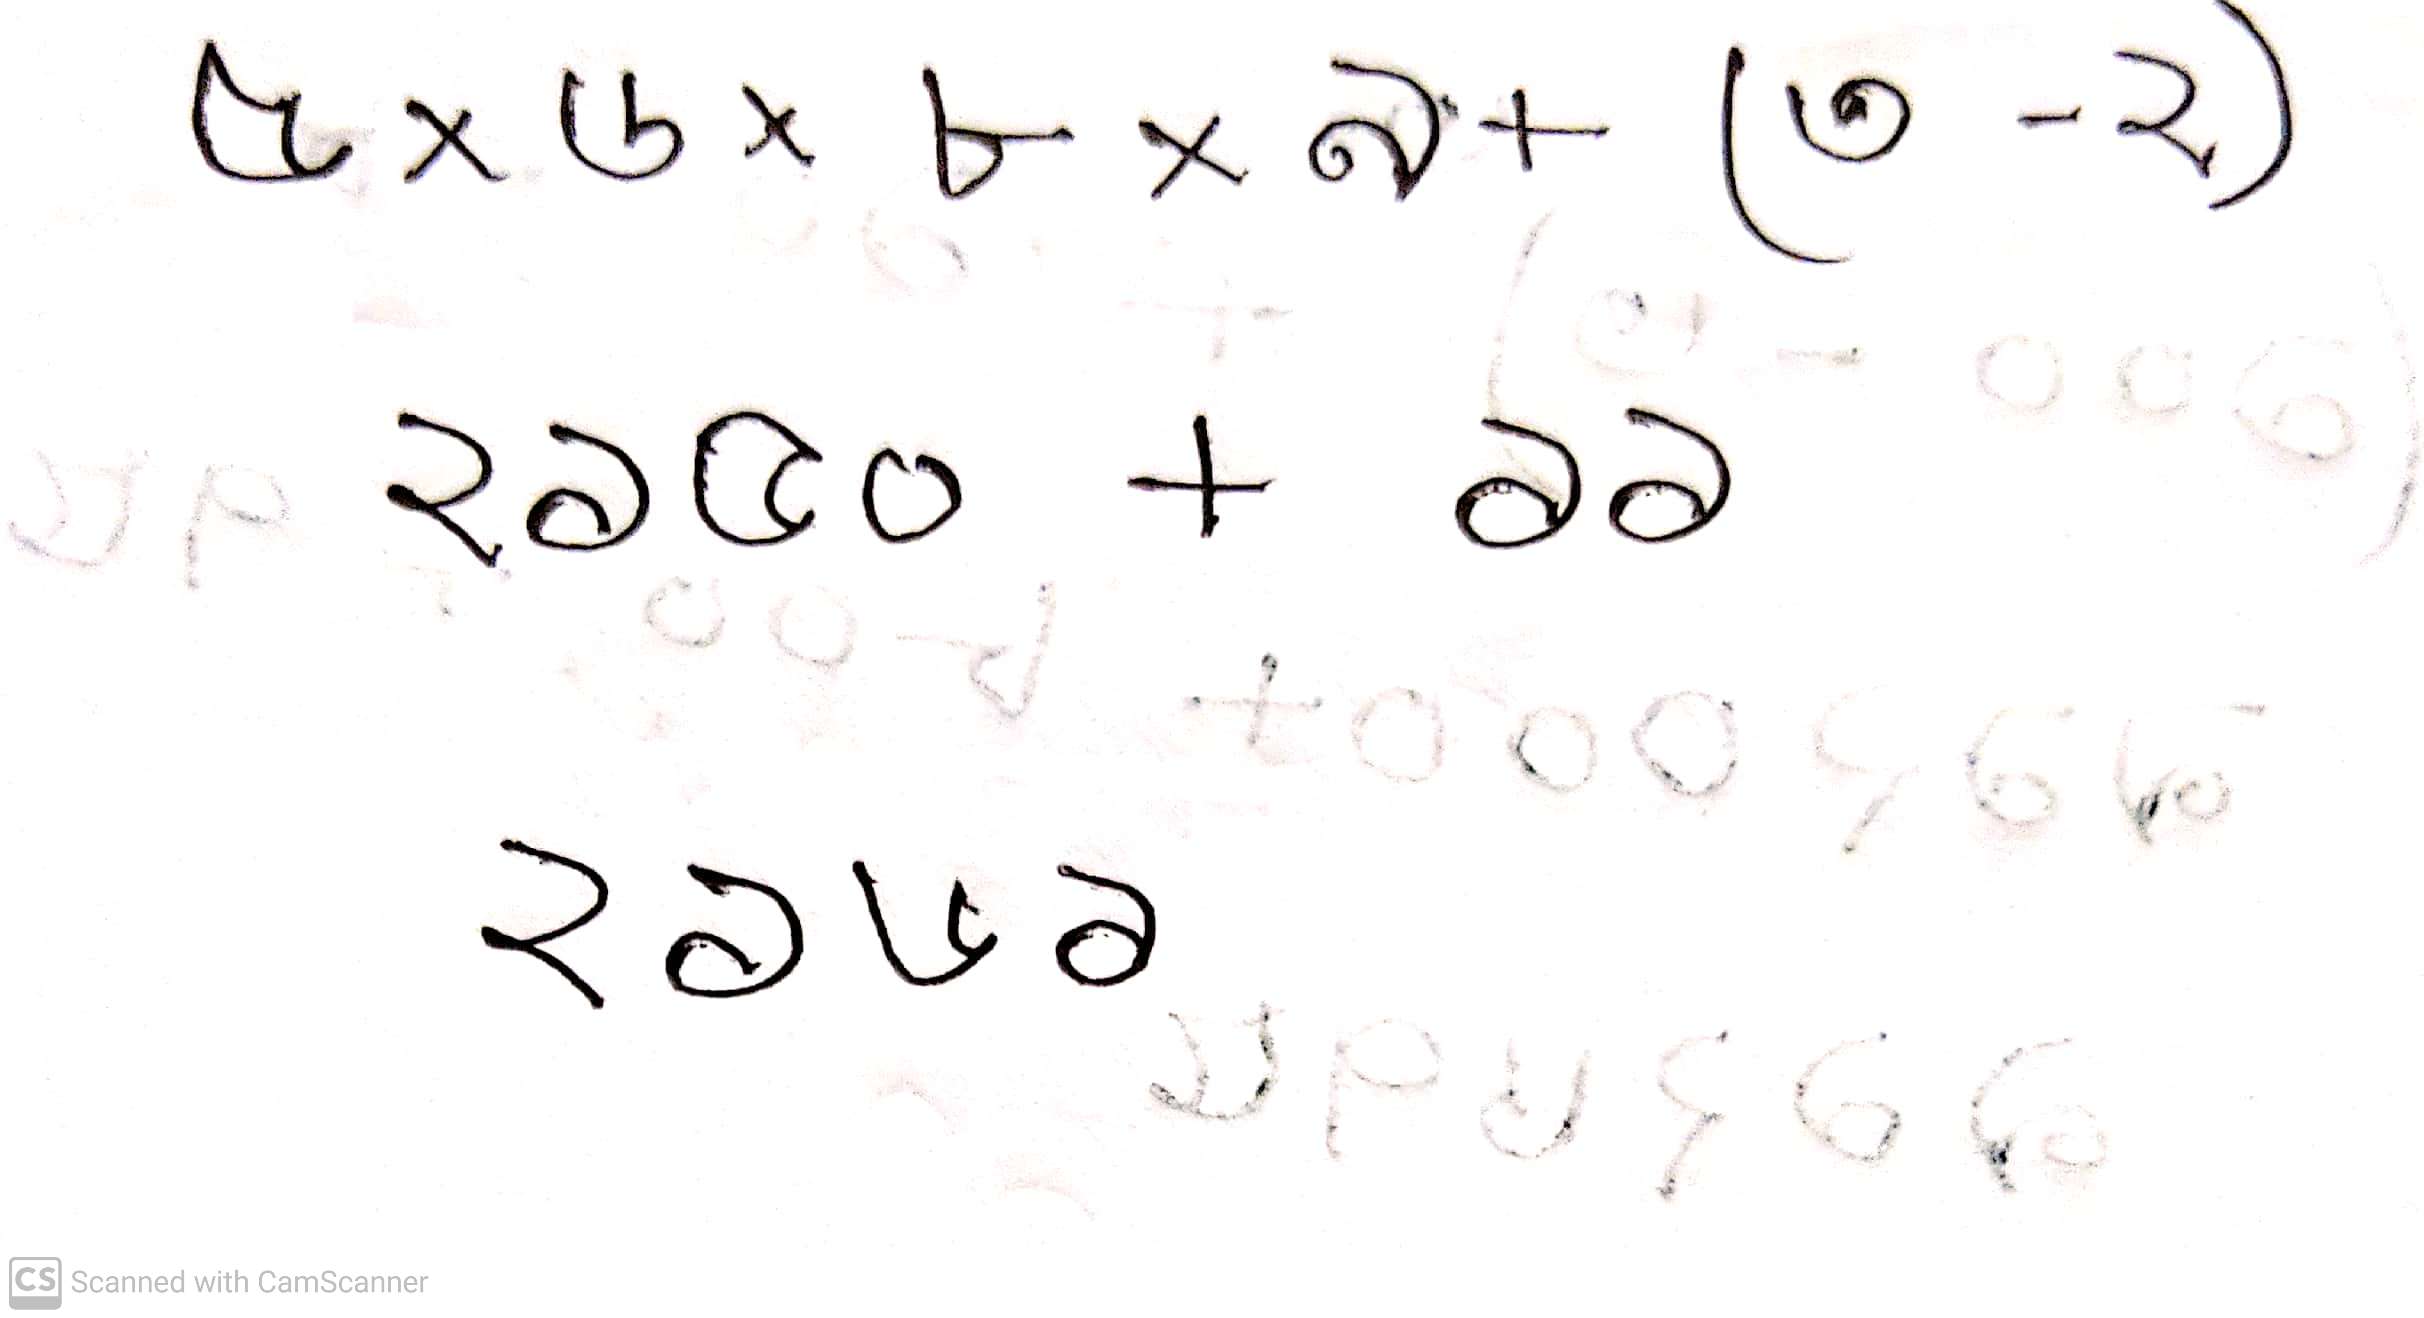 ৫ × ৬ × ৮ × ৯ + (৩ - ২)
২১৫০ + ১১
২১৬১
CS Scanned with CamScanner